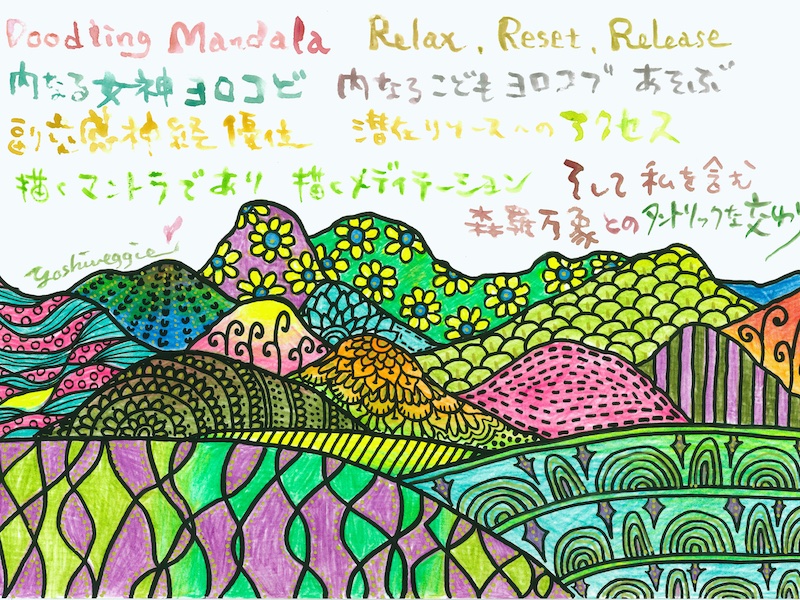 Doodling Mandala Relax, Reset, Release
内なる女神ヨロコビ 内なるこどもヨロコブ あそぶ
副交感神経優位 潜在リソースへのアクセス
描くマントラであり 描くメディテーション そして私を含む
森羅万象とのタントリックな交わり
yoshiveggie